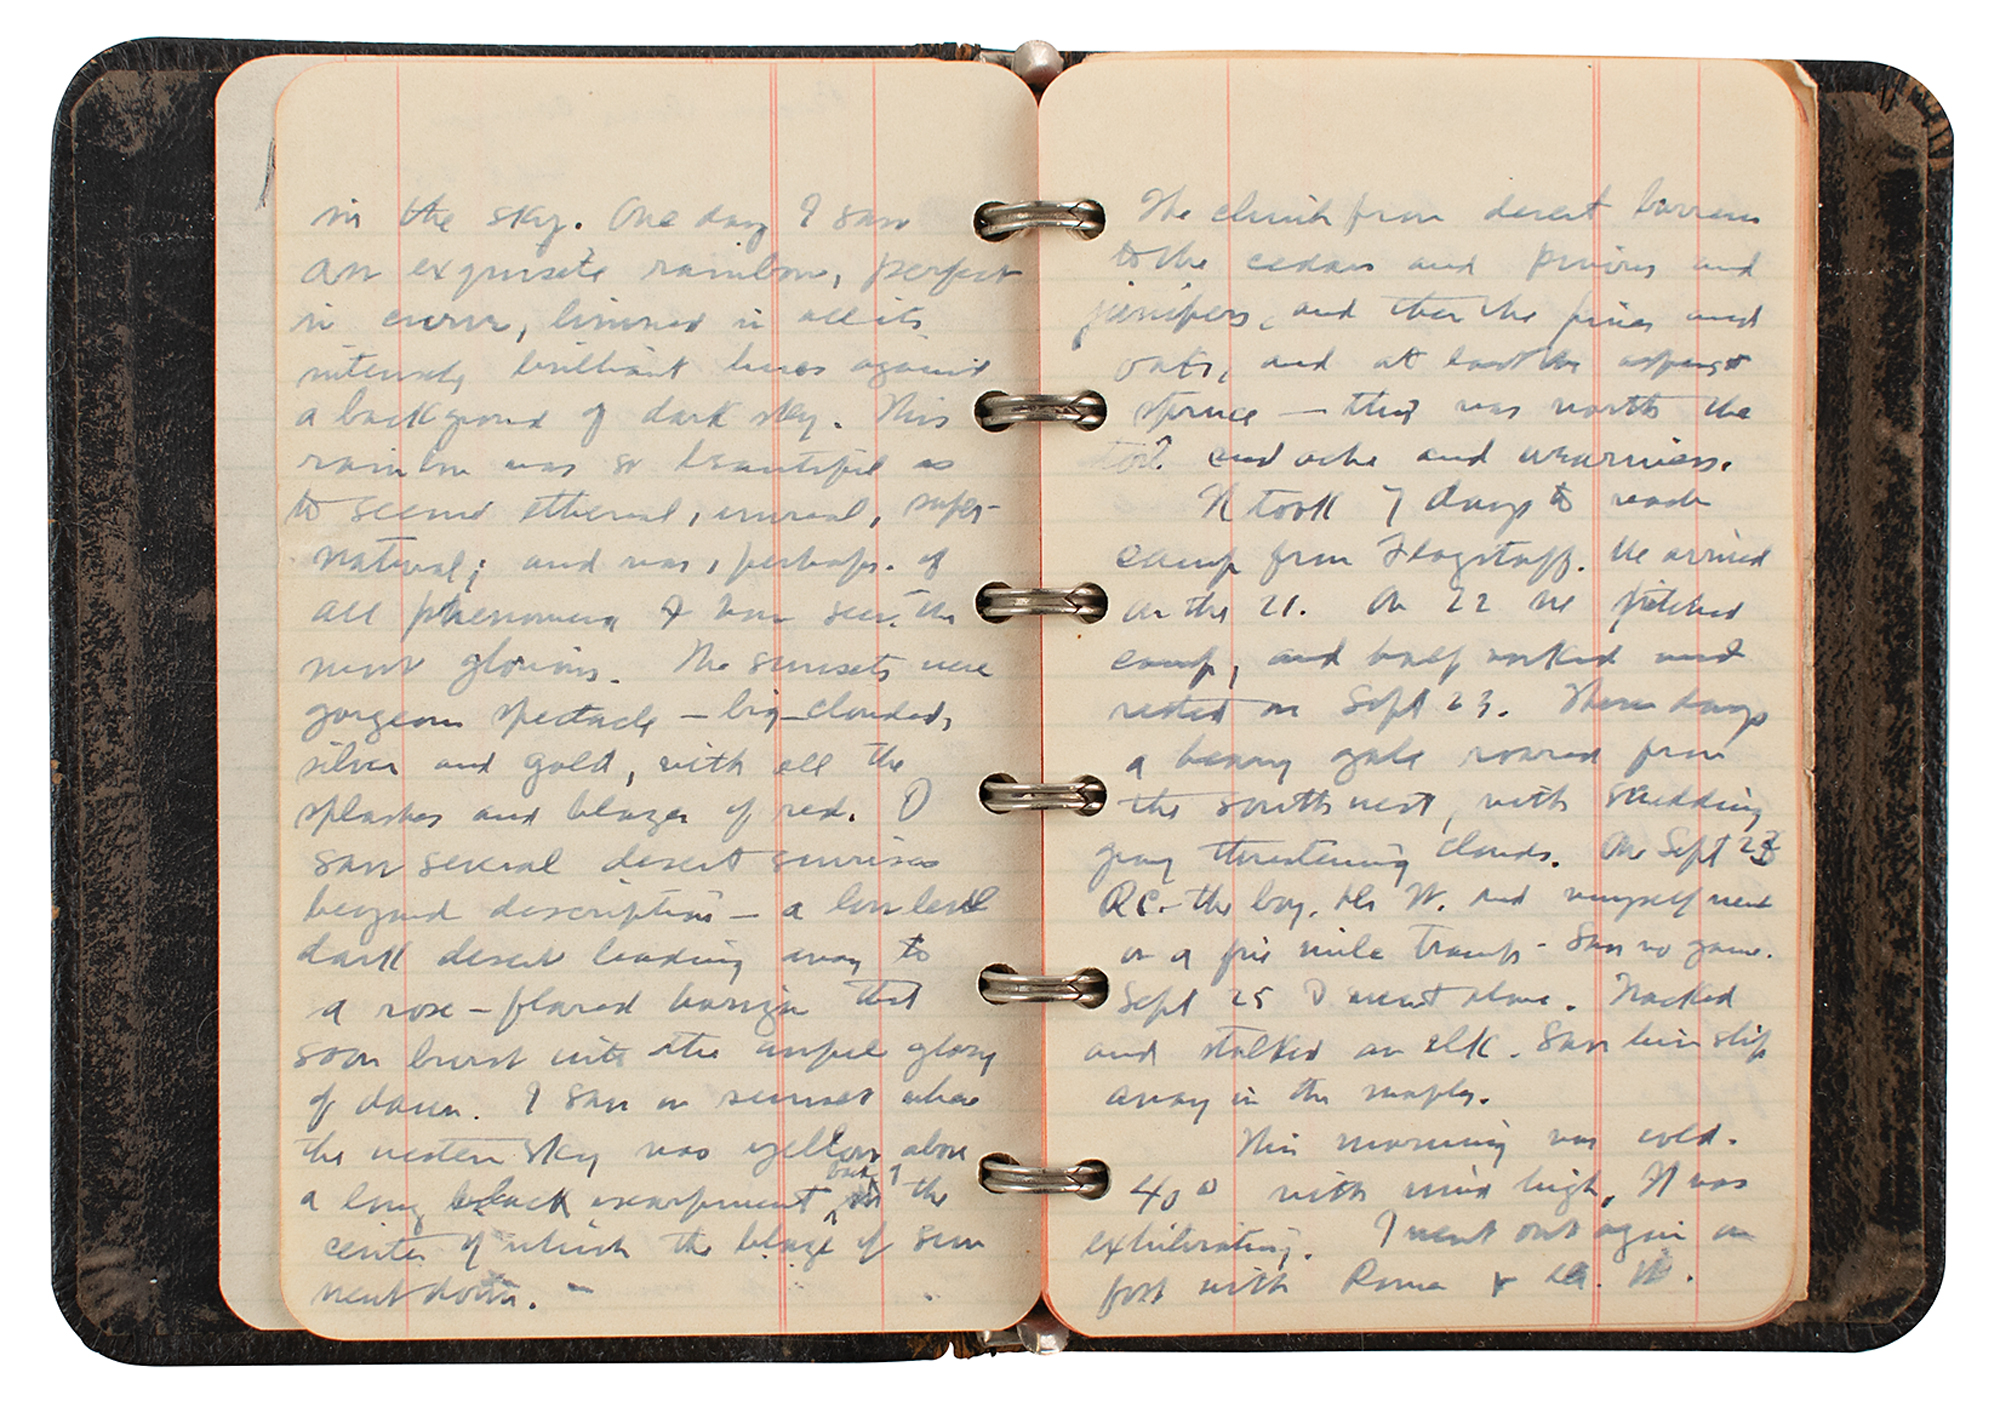 in the sky. One day I saw
an exquisite rainbow, perfect
in curve, limned in all its
intensely brilliant hues against
a background of dark sky. This
rainbow was so beautiful as
to seem ethereal, unreal, super-
natural; and was, perhaps. of
all phenomena I have seen, the
most glorious. The sunsets were
gorgeous spectacle — big-clouded,
silver and gold, with all the
splashes and blazes of red. I
saw several desert sunrises
beyond description — a low level
dark desert leading away to
a rose-flared horizon that
soon burst with the awful glory
of dawn. I saw a sunset where
the western sky was yellow above
a long black escarpment, back of the
center of which the blaze of sun
went down. —
The climb from desert barrens
to the cedars and pinions and
junipers, and then the pines and
oaks, and at last the aspens &
spruce — this was worth the
toil and ache and weariness.
It took 7 days to reach
camp from Flagstaff. We arrived
on the 21. On 22 we pitched
camp, and half worked and
rested on Sept 23. These days
a heavy gale roared from
the southwest, with scudding
gray threatening clouds. On Sept 23
R.C. the boy. Dr W. and myself went
on a five mile tramp - Saw no game.
Sept 25 I went alone. Tracked
and stalked an elk. Saw him slip
away in the maples.
This morning was cold.
40° with wind high. It was
exhilirating. I went out again on
foot with Romer & Dr. W.